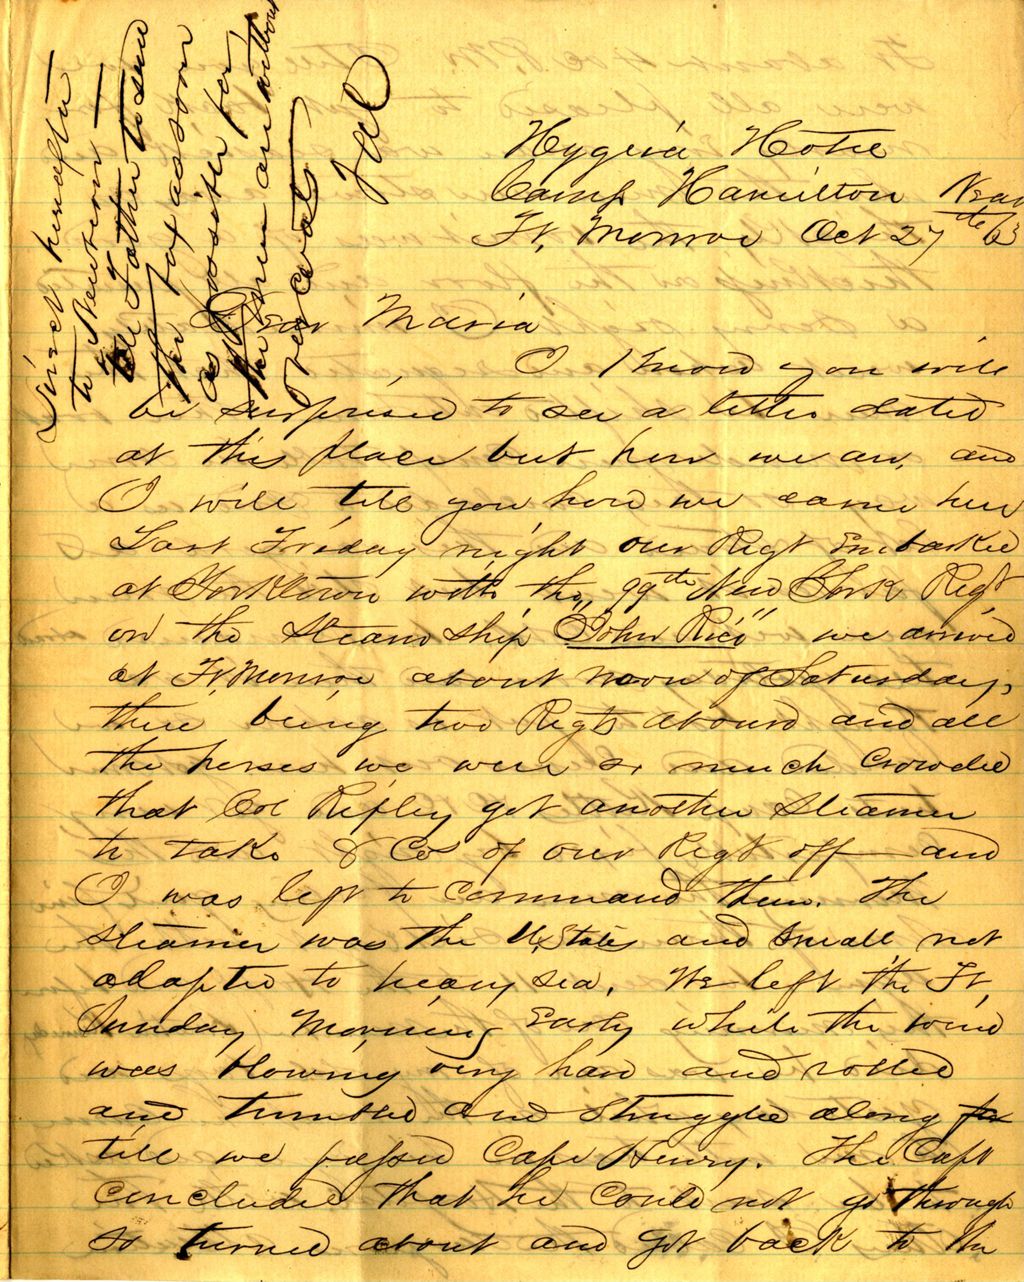 Hygeia Hotel
Camp Hamilton Near
Ft. Monroe Oct 27th 63
Dear Maria
I know you will
be surprised to see a letter dated
at this place but here we are, and
I will tell you how we came here
Last Friday night our Regt Embarked
at Yorktown with the 99th New York Regt
on the Steam ship "John Rice" we arrived
at Ft. Monroe about noon of Saturday,
there being two Regts aboard and all
the horses we were so much crowded
that Col Ripley got another steamer
to take 8 Cos of our Regt off and
I was left to command them. The
steamer was the U. States and small not
adapted to heavy sea. We left the Ft,
Sunday Morning Early while the wind
was blowing very hard and rolled
and tumbled and struggled along
till we passed Cape Henry. The Capt
concluded that he could not go through
so turned about and got back to the
Direct hereafter
to Newbern —
tell Father to send
the box as soon
as possible for
the men are without
overcoats